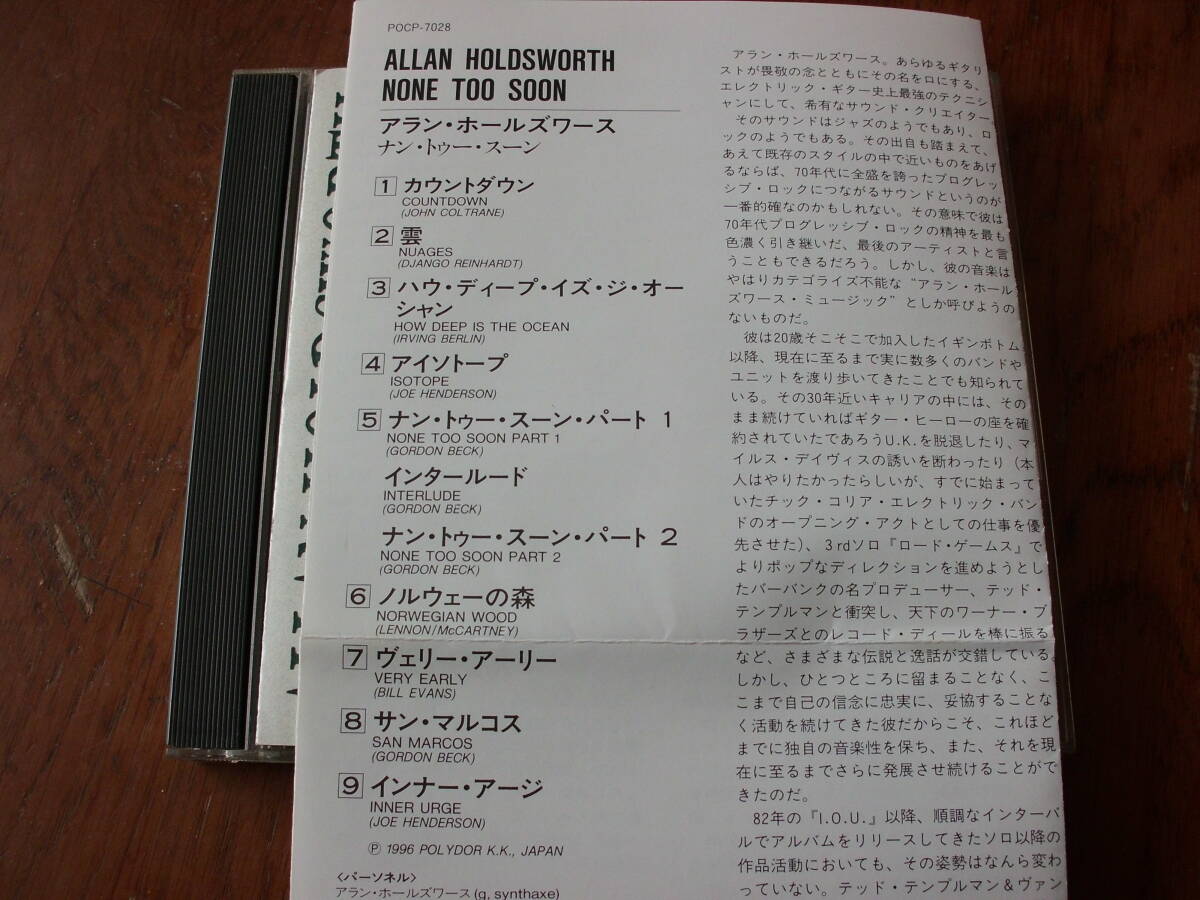 POCP-7028
ALLAN HOLDSWORTH
NONE TOO SOON
アラン・ホールズワース
ナン・トゥー・スーン
1 カウントダウン
COUNTDOWN
(JOHN COLTRANE)
2 雲
NUAGES
(DJANGO REINHARDT)
3 ハウ・ディープ・イズ・ジ・オー
シャン
HOW DEEP IS THE OCEAN
(IRVING BERLIN)
4 アイソトープ
ISOTOPE
(JOE HENDERSON)
5 ナン・トゥー・スーン・パート 1
NONE TOO SOON PART 1
(GORDON BECK)
インタールード
INTERLUDE
(GORDON BECK)
ナン・トゥー・スーン・パート 2
NONE TOO SOON PART 2
(GORDON BECK)
6 ノルウェーの森
NORWEGIAN WOOD
(LENNON/McCARTNEY)
7 ヴェリー・アーリー
VERY EARLY
(BILL EVANS)
8 サン・マルコス
SAN MARCOS
(GORDON BECK)
9 インナー・アージ
INNER URGE
(JOE HENDERSON)
Ⓟ 1996 POLYDOR K.K., JAPAN
〈パーソネル〉
アラン・ホールズワース (g, synthaxe)
アラン・ホールズワース。あらゆるギタリ
ストが畏敬の念とともにその名を口にする、
エレクトリック・ギター史上最強のテクニシ
ャンにして、希有なサウンド・クリエイター。
そのサウンドはジャズのようでもあり、ロ
ックのようでもある。その出自も踏まえて、
あえて既存のスタイルの中で近いものをあげ
るならば、70年代に全盛を誇ったプログレッ
シブ・ロックにつながるサウンドというのが
一番的確なのかもしれない。その意味で彼は
70年代プログレッシブ・ロックの精神を最も
色濃く引き継いだ、最後のアーティストと言
うこともできるだろう。しかし、彼の音楽は
やはりカテゴライズ不能な“アラン・ホール
ズワース・ミュージック”としか呼びようの
ないものだ。
彼は20歳そこそこで加入したイギンボトム
以降、現在に至るまで実に数多くのバンドや
ユニットを渡り歩いてきたことでも知られて
いる。その30年近いキャリアの中には、その
まま続けていればギター・ヒーローの座を確
約されていたであろうU.K.を脱退したり、マ
イルス・デイヴィスの誘いを断わったり（本
人はやりたかったらしいが、すでに始まって
いたチック・コリア・エレクトリック・バン
ドのオープニング・アクトとしての仕事を優
先させた）、3rdソロ『ロード・ゲームス』で
よりポップなディレクションを進めようとし
たバーバンクの名プロデューサー、テッド・
テンプルマンと衝突し、天下のワーナー・ブ
ラザーズとのレコード・ディールを棒に振る
など、さまざまな伝説と逸話が交錯している。
しかし、ひとつところに留まることなく、こ
こまで自己の信念に忠実に、妥協することな
く活動を続けてきた彼だからこそ、これほど
までに独自の音楽性を保ち、また、それを現
在に至るまでさらに発展させ続けることがで
きたのだ。
82年の『I.O.U.』以降、順調なインターバ
ルでアルバムをリリースしてきたソロ以降の
作品活動においても、その姿勢はなんら変わ
っていない。テッド・テンプルマン＆ヴァン